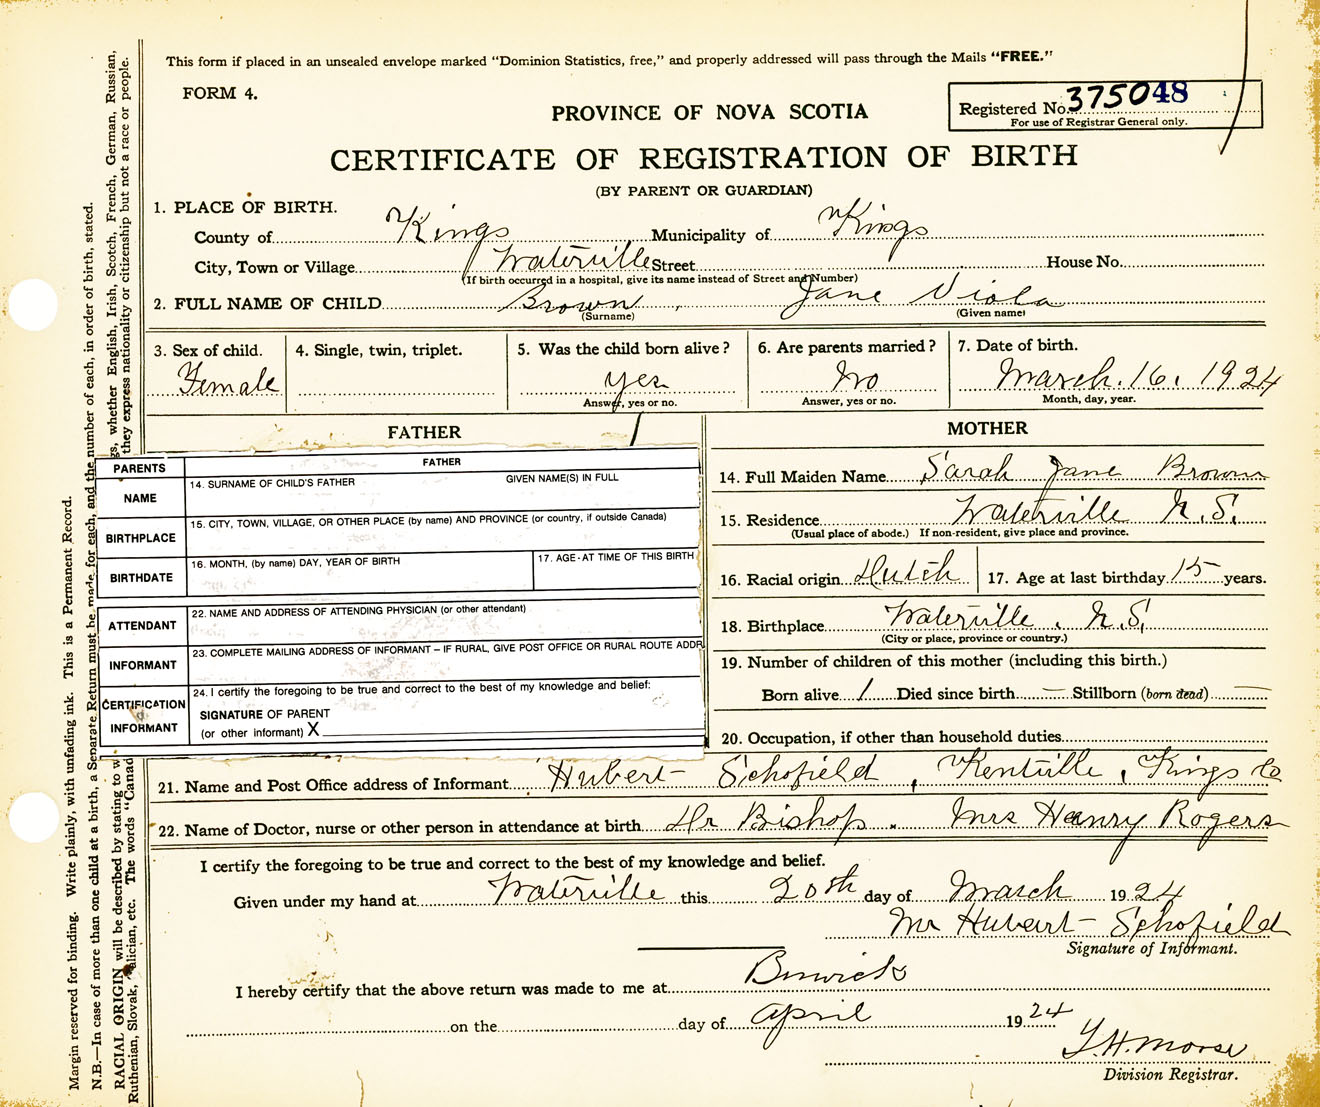 This form if placed in an unsealed envelope marked “Dominion Statistics, free,” and properly addressed will pass through the Mails “FREE.”
FORM 4.
Registered No. 375048
For use of Registrar General only.
PROVINCE OF NOVA SCOTIA
CERTIFICATE OF REGISTRATION OF BIRTH
(BY PARENT OR GUARDIAN)
1. PLACE OF BIRTH.
County of Kings Municipality of Kings
City, Town or Village Waterville Street House No.
(If birth occurred in a hospital, give its name instead of Street and Number)
2. FULL NAME OF CHILD Brown, Jane Viola
(Surname) (Given name)
3. Sex of child. 4. Single, twin, triplet. 5. Was the child born alive? 6. Are parents married? 7. Date of birth.
Female yes No March. 16. 1924
Answer, yes or no. Answer, yes or no. Month, day, year.
FATHER
PARENTS FATHER
NAME 14. SURNAME OF CHILD'S FATHER GIVEN NAME(S) IN FULL
BIRTHPLACE 15. CITY, TOWN, VILLAGE, OR OTHER PLACE (by name) AND PROVINCE (or country, if outside Canada)
BIRTHDATE 16. MONTH, (by name) DAY, YEAR OF BIRTH 17. AGE - AT TIME OF THIS BIRTH
ATTENDANT 22. NAME AND ADDRESS OF ATTENDING PHYSICIAN (or other attendant)
INFORMANT 23. COMPLETE MAILING ADDRESS OF INFORMANT – IF RURAL, GIVE POST OFFICE OR RURAL ROUTE ADDR
CERTIFICATION INFORMANT 24. I certify the foregoing to be true and correct to the best of my knowledge and belief:
SIGNATURE OF PARENT
(or other informant) X
MOTHER
14. Full Maiden Name Sarah Jane Brown
15. Residence Waterville N.S.
(Usual place of abode.) If non-resident, give place and province.
16. Racial origin Dutch 17. Age at last birthday 15 years.
18. Birthplace Waterville. N.S.
(City or place, province or country.)
19. Number of children of this mother (including this birth.)
Born alive 1 Died since birth — Stillborn (born dead) —
20. Occupation, if other than household duties
21. Name and Post Office address of Informant Hubert Schofield, Kentville, Kings Co
22. Name of Doctor, nurse or other person in attendance at birth Dr Bishop. Mrs Henry Rogers
I certify the foregoing to be true and correct to the best of my knowledge and belief.
Given under my hand at Waterville this 20th day of March 1924
Mr Hubert Schofield
Signature of Informant.
I hereby certify that the above return was made to me at Berwick
on the day of April 1924
Division Registrar.
Margin reserved for binding. Write plainly, with unfading ink. This is a Permanent Record.
N.B.—In case of more than one child at a birth, a Separate Return must be made for each, and the number of each, in order of birth, stated.
RACIAL ORIGIN will be described by stating to w gs, whether English, Irish, Scotch, French, German, Russian,
Ruthenian, Slovak, Galician, etc. The words “Canad they express nationality or citizenship but not a race or people.